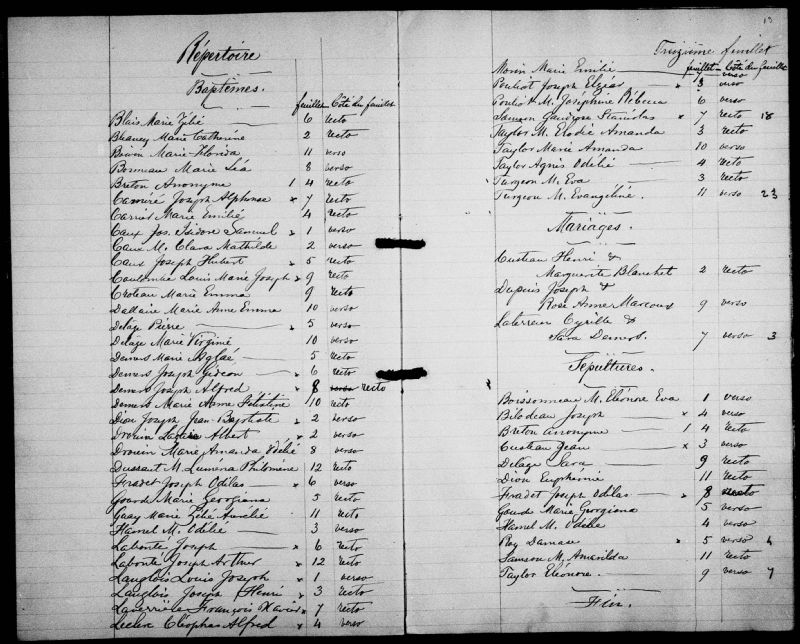 Répertoire
Baptêmes.
feuillet Côté du feuillet
Blais Marie Zélié 6 recto
Blaney Marie Catherine 2 recto
Boivin Marie-Florida 11 verso
Bonneau Marie Léa 8 verso
Breton Anonyme 1 4 recto
Camiré Joseph Alphonse x 7 recto
Carrier Marie Emilie 4 recto
Caux Jos. Isidore Samuel x 1 verso
Caux M. Clara Mathilde 2 verso
Caux Joseph Hubert x 5 recto
Coulombe Louis Marie Joseph x 9 recto
Croteau Marie Emma 9 recto
Dallaire Marie Anne Emma 10 verso
Delage Pierre x 5 verso
Delage Marie Virginie 10 verso
Demers Marie Aglaé 5 recto
Demers Joseph Gédéon x 6 recto
Demers Joseph Alfred x 8 verso recto
Demers Marie Anne Félistine 10 recto
Dion Joseph Jean-Baptiste x 2 verso
Drouin Albert x 2 verso
Drouin Marie Amanda Odélie 8 verso
Dussault M. Lumena Philomène 12 recto
Fradet Joseph Odilas x 6 verso
Gourde Marie Georgiana 5 recto
Guay Marie Zélié Aurélie 11 recto
Hamel M. Odélie 3 verso
Labonté Joseph x 6 recto
Labonté Joseph Arthur x 12 recto
Langlois Louis Joseph x 1 verso
Langlois Joseph Henri x 3 recto
Laverrière François Xavier x 7 recto
Leclerc Cléophas Alfred x 4 verso
13
Treizième feuillet
feuillet Côté du feuillet
Morin Marie Emilie verso
Pouliot Joseph Elzéar x 3 verso
Pouliot M. Josephine Rébecca 6 verso
Samson Gaudiose Stanislas x 7 recto 18
Taylor M. Elodie Amanda 3 recto
Taylor Marie Amanda 10 verso
Taylor Agnès Odélie 4 recto
Turgeon M. Eva 3 recto
Turgeon M. Evangéline 11 verso 23
Mariages.
Custeau Henri &
Marguerite Blanchet 2 recto
Dupuis Joseph &
Rose Anne Marcoux 9 verso
Laterreur Cyrille &
Sara Demers. 7 verso 3
Sépultures.
Boissonneau M. Eléonore Eva 1 verso
Bilodeau Joseph x 4 verso
Breton anonyme 1 4 recto
Custeau Jean x 3 verso
Delage Sara 9 recto
Dion Euphémie 11 recto
Fradet Joseph Odilas x 8 recto
Gourde Marie Georgiana 5 verso
Hamel M. Odélie 4 verso
Roy Damase x 5 verso 4
Samson M. Amarilda 11 recto
Taylor Eléonore. 9 verso 7
Fin.